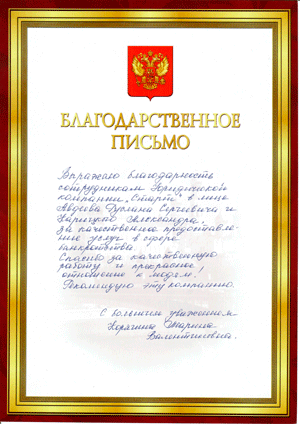 БЛАГОДАРСТВЕННОЕ
ПИСЬМО
Выражаю благодарность
сотрудникам Юридической
компании „Старт" в лице
Сергеевича и
Александра.
За качественное предоставле-
ние услуг в сфере
банкротства.
Спасибо за качественную
работу и прекрасное
отношение к людям!
Рекомендую эту компанию.
С большим уважением
Марина
Валентиновна.